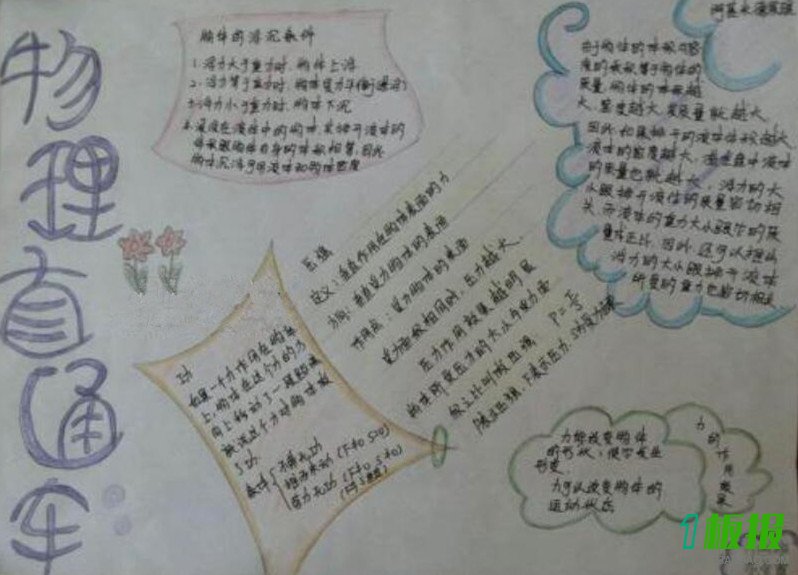 物理直通车
物体的浮沉条件
1.浮力大于重力时,物体上浮
2.浮力等于重力时,物体受力平衡(悬浮)
3.浮力小于重力时,物体下沉
4.浸没在液体中的物体其排开液体的
体积跟物体自身的体积相等,因此
物体沉浮于液体和物体密度
阿基米德原理
由于物体的体积与密
度的乘积等于物体的
质量,物体的体积越
大、密度越大,质量就越大
因此如果排开的液体体积越大
液体的密度越大,
的质量也就越大,浮力的大
小跟排开液体的质量密切相
关,而液体的重力大小跟它的质
量成正比,因此,还可以推出
浮力的大小跟排开液体
所受的重力也密切相关
压强
定义:垂直作用在物体表面的力
方向:垂直受力物体的表面
作用点:受力物体的表面
受力面积相同时,压力越大,
压力作用效果越明显
物体所受压力的大小与受力面
积之比叫做压强 P=F/S
功
如果一个力作用在物体
上,物体在这个力的方
向上移动了一段距离
就说这个力对物体做
了功
不劳无功
劳而无功 (F≠0 S=0)
力能改变物体
的形状,使它发生
形变.
力可以改变物体的
运动状态
力的作用效果
1板报